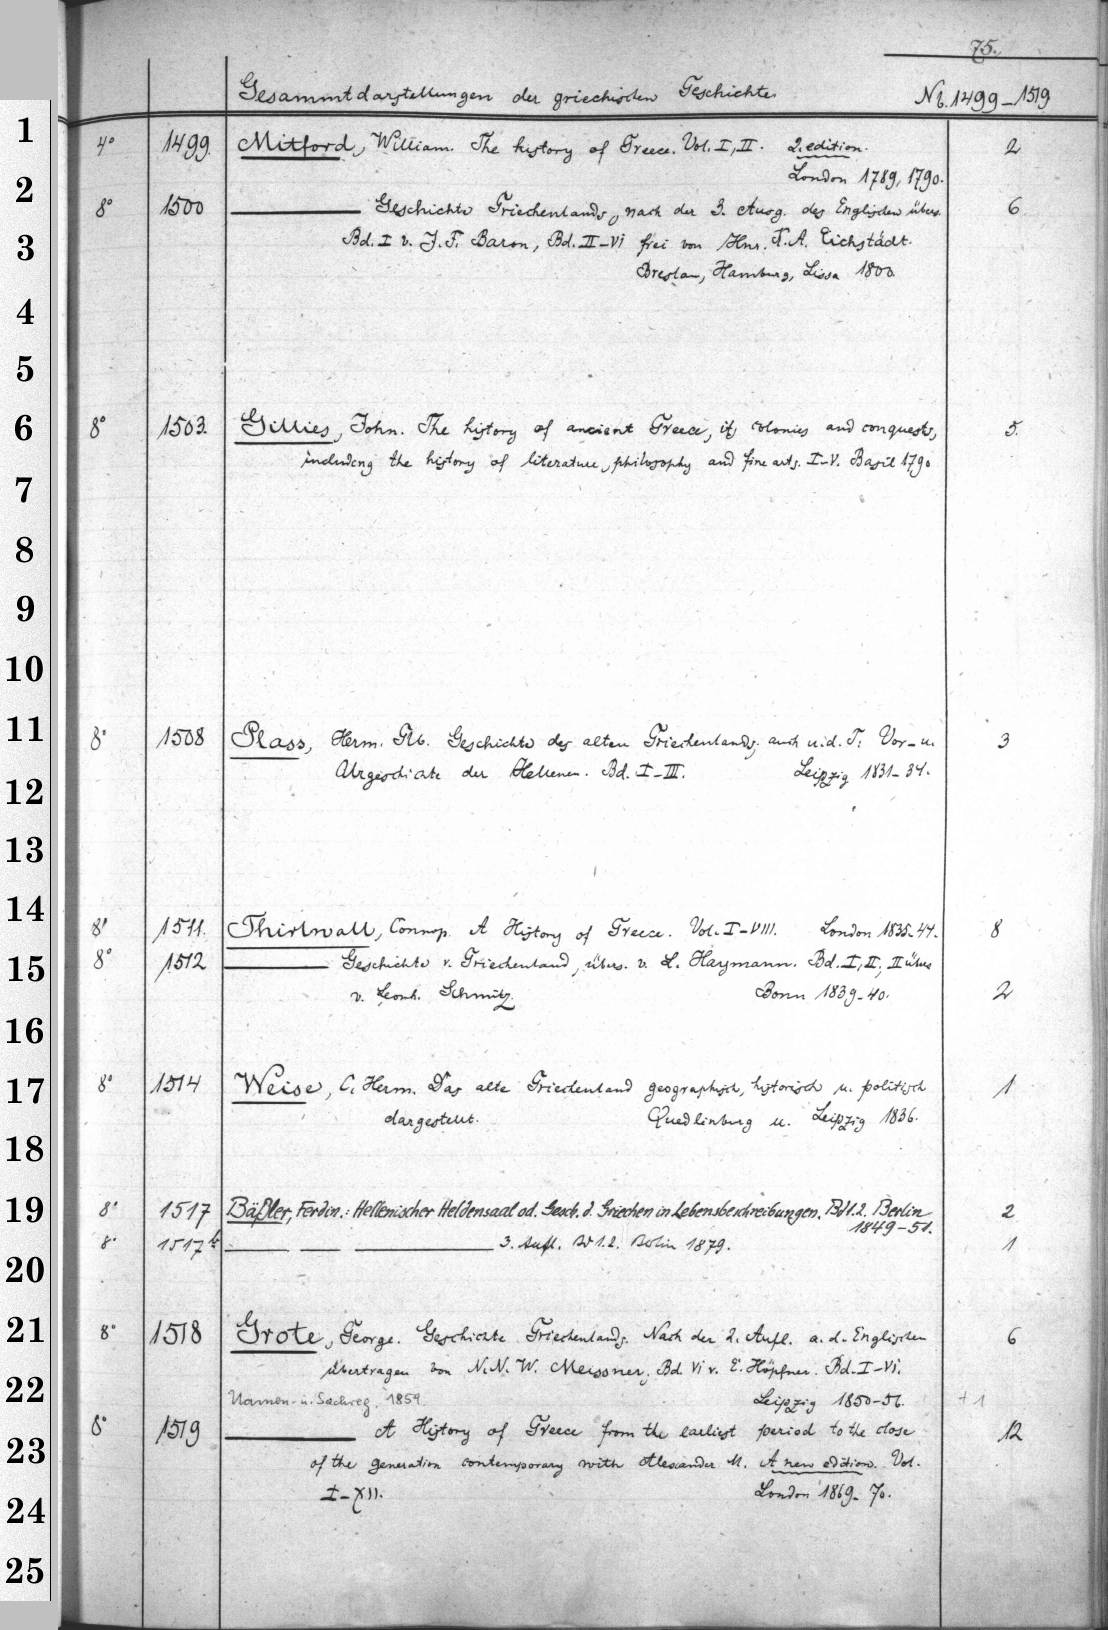 75.
Gesammtdarstellungen der griechischen Geschichte. No. 1499–1519
1
4° 1499. Mitford, William. The history of Greece. Vol. I, II. 2. edition. 2
London 1789, 1790.
2
8° 1500 ——— Geschichte Griechenlands, nach der 3. Ausg. des Englischen übers. 6
3
Bd. I v. J. F. Baron, Bd. II–VI frei von Hnr. K. A. Eichstädt.
Breslau, Hamburg, Lissa 1800
4
5
6
8° 1503. Gillies, John. The history of ancient Greece, its colonies and conquests, 5.
including the history of literature, philosophy and fine arts. I–V. Basil 1790
7
8
9
10
11
8° 1508 Plass, Herm. Glb. Geschichte des alten Griechenlands; auch u. d. T: Vor- u. 3
Urgeschichte der Hellenen. Bd. I–III. Leipzig 1831–34.
12
13
14
8° 1511. Thirlwall, Connop. A History of Greece. Vol. I–VIII. London 1835–44. 8
15
8° 1512 ——— Geschichte v. Griechenland, übers. v. L. Haymann. Bd. I, II, II übers
v. Leonh. Schmitz. Bonn 1839–40. 2
16
17
8° 1514 Weise, C. Herm. Das alte Griechenland geographisch, historisch u. politisch 1
dargestellt. Quedlinburg u. Leipzig 1836.
18
19
8° 1517 Bäßler, Ferdin.: Hellenischer Heldensaal od. Gesch. d. Griechen in Lebensbeschreibungen. Bd 1.2. Berlin 2
1849–51.
8° 1517 b ——— —— ——— 3. Aufl. Bd 1.2. Berlin 1879. 1
20
21
8° 1518 Grote, George. Geschichte Griechenlands. Nach der 2. Aufl. a. d. Englischen 6
übertragen von N. N. W. Meissner, Bd. VI v. E. Höpfner. Bd. I–VI.
22
Namen- u. Sachreg. 1859. Leipzig 1850–56. +1
8° 1519 ——— A History of Greece from the earliest period to the close 12
23
of the generation contemporary with Alexander M. A new edition. Vol.
I–XII. London 1869–70.
24
25